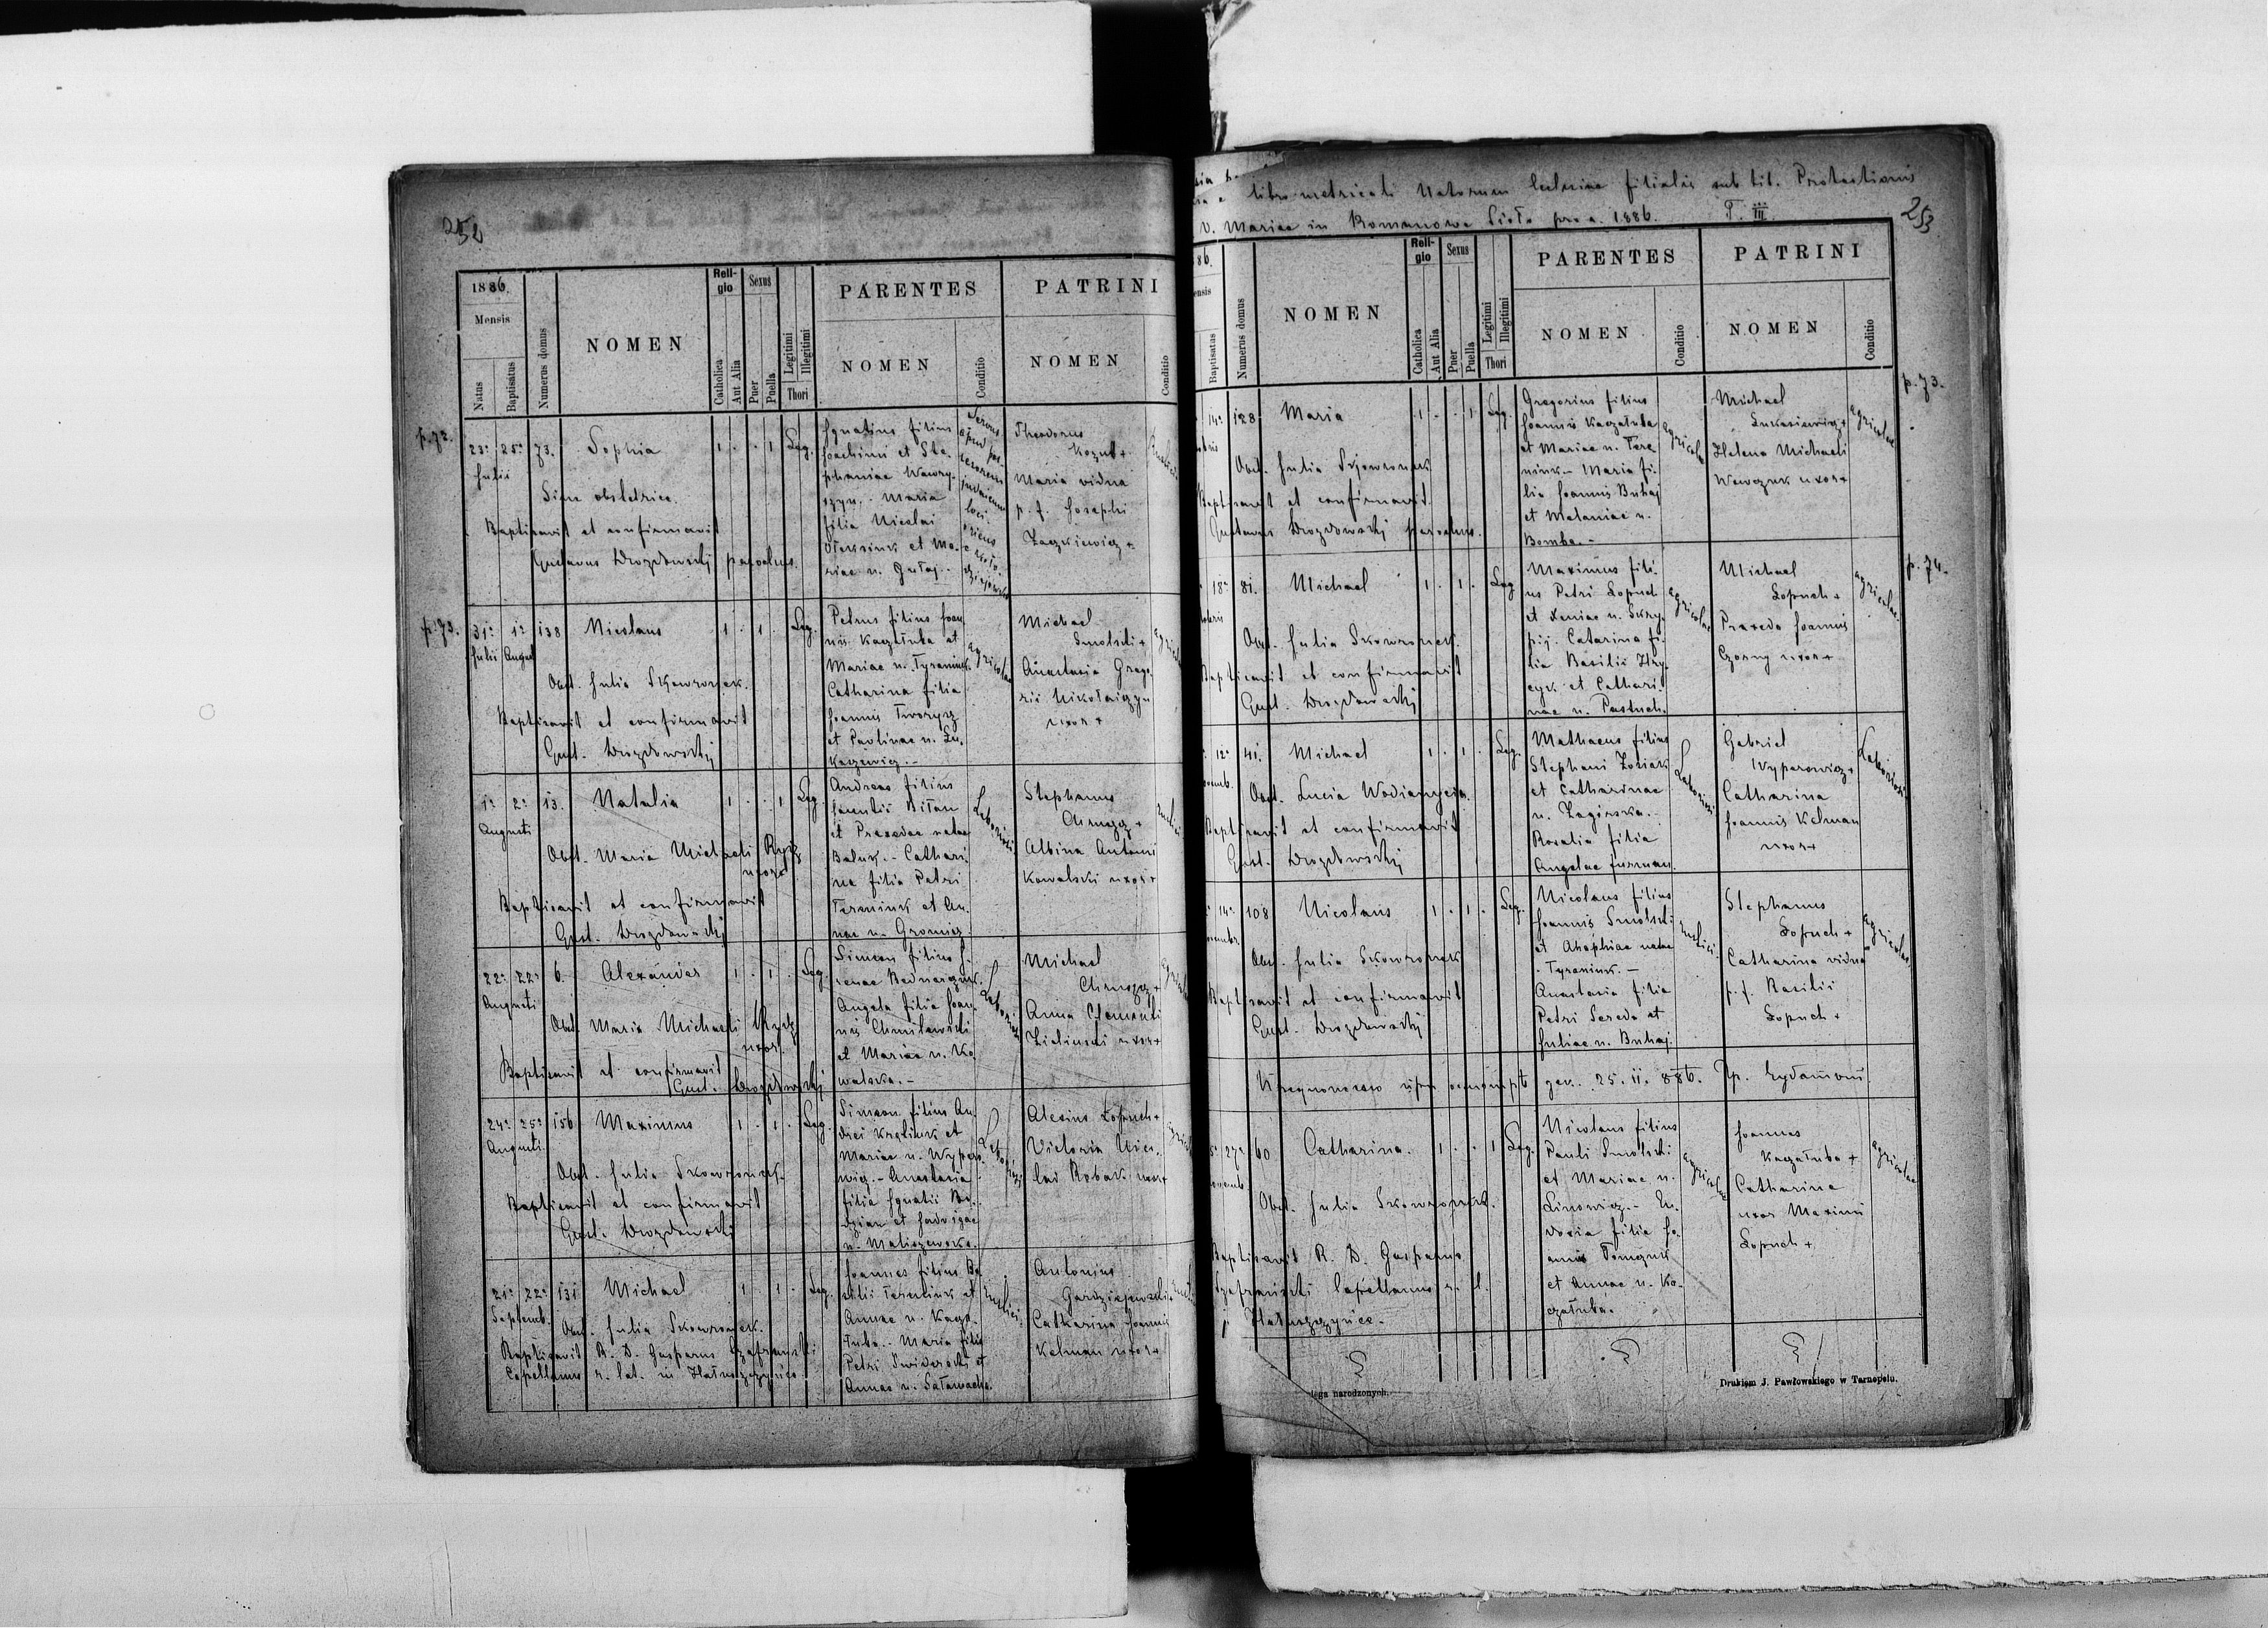 252
1886.
Mensis
Natus
Baptisatus
Numerus domus
NOMEN
Religio
Catholica
Aut Alia
Sexus
Puer
Puella
Legitimi
Illegitimi
Thori
PARENTES
NOMEN
Conditio
PATRINI
NOMEN
Conditio
p. 72.
23a 25a 73. Sophia 1 . . 1 Leg.
Julii
Sine obstetrice.
Baptisavit et confirmavit
Gustavus Drozdowskij parochus.
Ignatius filius
Joachimi et Ste-
phaniae Wawry-
szyn. - Maria
filia Nicolai
Oleksiuk et Ma-
riae n. Gułaj. -
Servus
apud
judaeum
loci
Theodorus
Kozub +
Maria vidua
p. f. Josephi
Zaczkiewicz +
p. 73.
31a 1a 138 Nicolaus 1 . 1 . Leg.
Julii August
Obst. Julia Skowronek.
Baptisavit et confirmavit
Gust. Drozdowskij
Petrus filius Joan-
nis Kaczałuba et
Mariae n. Tyraniuk.
Catharina filia
Joannis Tworysz
et Paulinae n. Lu-
kasiewicz. -
agricolae
Michael
Smolski +
Anastasia Grego-
rii Nikołaiczyn
uxor +
1a 2a 13. Natalia 1 . . 1 Leg.
Augusti
Obst. Maria Michaeli Rysz
uxor
Baptisavit et confirmavit
Gust. Drozdowskij
Andreas filius
Leontii Biłan
et Praxedae natae
Baluk. - Cathari-
na filia Petri
Terniuk et An-
nae n. Gromisz.
Laboriosi
Stephanus
Chruszcz +
Albina Antonii
Kowalski uxor +
22a 22a 6. Alexander 1 . 1 . Leg.
Augusti
Obst. Maria Michaeli Rysz
uxor.
Baptisavit et confirmavit
Gust. Drozdowskij
Simeon filius I-
renae Bednarczuk.
Angela filia Joan-
nis Chmilewski
et Mariae n. Ko-
walska. -
Laboriosi
Michael
Chruszcz +
Anna Clementi
Zielinski uxor +
24a 25a 156 Maximus 1 . 1 . Leg.
Augusti.
Obst. Julia Skowronek.
Baptisavit et confirmavit
Gust. Drozdowski
Simeon filius An-
drei et
Mariae n. Wypero-
wicz. - Anastasia
filia Ignatii
et Hedvigae
n. Maliszewska.
Laboriosi
Alexius Łopuch +
Victoria Nico-
lai Robak uxor +
21a 22a 131 Michael 1 . 1 . Leg.
Septemb.
Obst. Julia Skowronek.
Baptisavit R. D. Gasparus Szafrański
Capellanus r. lat. in Hałuszczyńce
Joannes filius Ba-
silii Terniuk et
Annae n. Kacza-
łuba. - Maria filia
Petri Swiderski et
Annae n. Sałamacha.
rustici
Antonius
Gordziejewski +
Catharina Joannis
Kelman uxor +
253
libro metricali Natorum Ecclesiae filialis sub tit. Protectionis
V. Mariae in Romanowe Sioło pro a. 1886. T. III
86.
ensis
Baptisatus
Numerus domus
NOMEN
Religio
Catholica
Aut Alia
Sexus
Puer
Puella
Legitimi
Illegitimi
Thori
PARENTES
NOMEN
Conditio
PATRINI
NOMEN
Conditio
p. 73.
14a 128 Maria 1 . . 1 Leg.
Obst. Julia Skowronek
Baptisavit et confirmavit.
Gustavus Drozdowskij parochus.
Gregorius filius
Joannis Kaczałuba
et Mariae n. Tera-
niuk - Maria fi-
lia Joannis Buhaj
et Melaniae n.
Bomba. -
agricolae
Michael
Lukasiewicz +
Helena Michaeli
Wawczuk uxor +
agricolae
p. 74.
18a 81. Michael 1 . 1 . Leg
Obst. Julia Skowronek.
Baptisavit et confirmavit
Gust. Drozdowskij
Maximus fili-
us Petri Łopuch
et Xeniae n. Skry-
pij. Catarina fi-
lia Basilii Hry-
cyk et Cathari-
nae n. Pastuch.
agricolae
Michael
Łopuch +
Praxeda Joannis
Czorny uxor +
agricolae
12a 41. Michael 1 . 1 . Leg.
vemb.
Obst. Lucia Wodianycia.
Baptisavit et confirmavit
Gust. Drozdowskij
Mathaeus filius
Stephani Zoziak
et Catharinae
n. Zagórska. -
Rosalia filia
Angelae Furman.
Laboriosi
Gabriel
Wyperowicz +
Catharina
Joannis Kelman
uxor +
Laboriosi
14a 108 Nicolaus 1 . 1 . Leg.
vembr.
Obst. Julia Skowronek
Baptisavit et confirmavit
Gust. Drozdowskij
Nicolaus filius
Joannis Smolski
et Ahaphiae natae
Tyraniuk. -
Anastasia filia
Petri Sereda et
Juliae n. Buhaj.
rustici
Stephanus
Łopuch +
Catharina vidua
p. f. Basilii
Łopuch +
agricolae
25. 11. 886.
27a 60 Catharina. 1 . . 1 Leg.
vemb.
Obst. Julia Skowronek.
Baptisavit R. D. Gasparus
Szafrański Capellanus r. l.
Hałuszczyńce.
Nicolaus filius
Pauli Smolski
et Mariae n.
Linowicz. - Eu-
doxia filia Jo-
annis Tomczuk
et Annae n. Ka-
czałuba.
agricolae
Joannes
Kaczałuba +
Catharina
uxor Maximi
Łopuch +
agricolae
ięga narodzonych.
Drukiem J. Pawłowskiego w Tarnopolu.